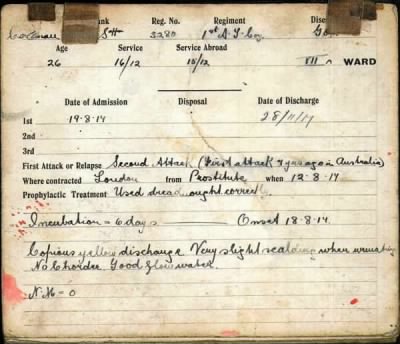 Rank Reg. No. Regiment
3280 1st A.
Age Service Service Abroad
26 16/12 10/12 VIII WARD
Date of Admission Disposal Date of Discharge
1st 19.8.17 28/11/17
2nd
3rd
First Attack or Relapse Second Attack (First attack 4 yrs ago in Australia)
Where contracted London from Prostitute when 12-8-17
Prophylactic Treatment Used dreadnought correctly
Incubation = 6 days Onset 18.8.17.
Copious yellow discharge Very slight scalding when urinating
No Chordee Good flow water.
N.M = 0